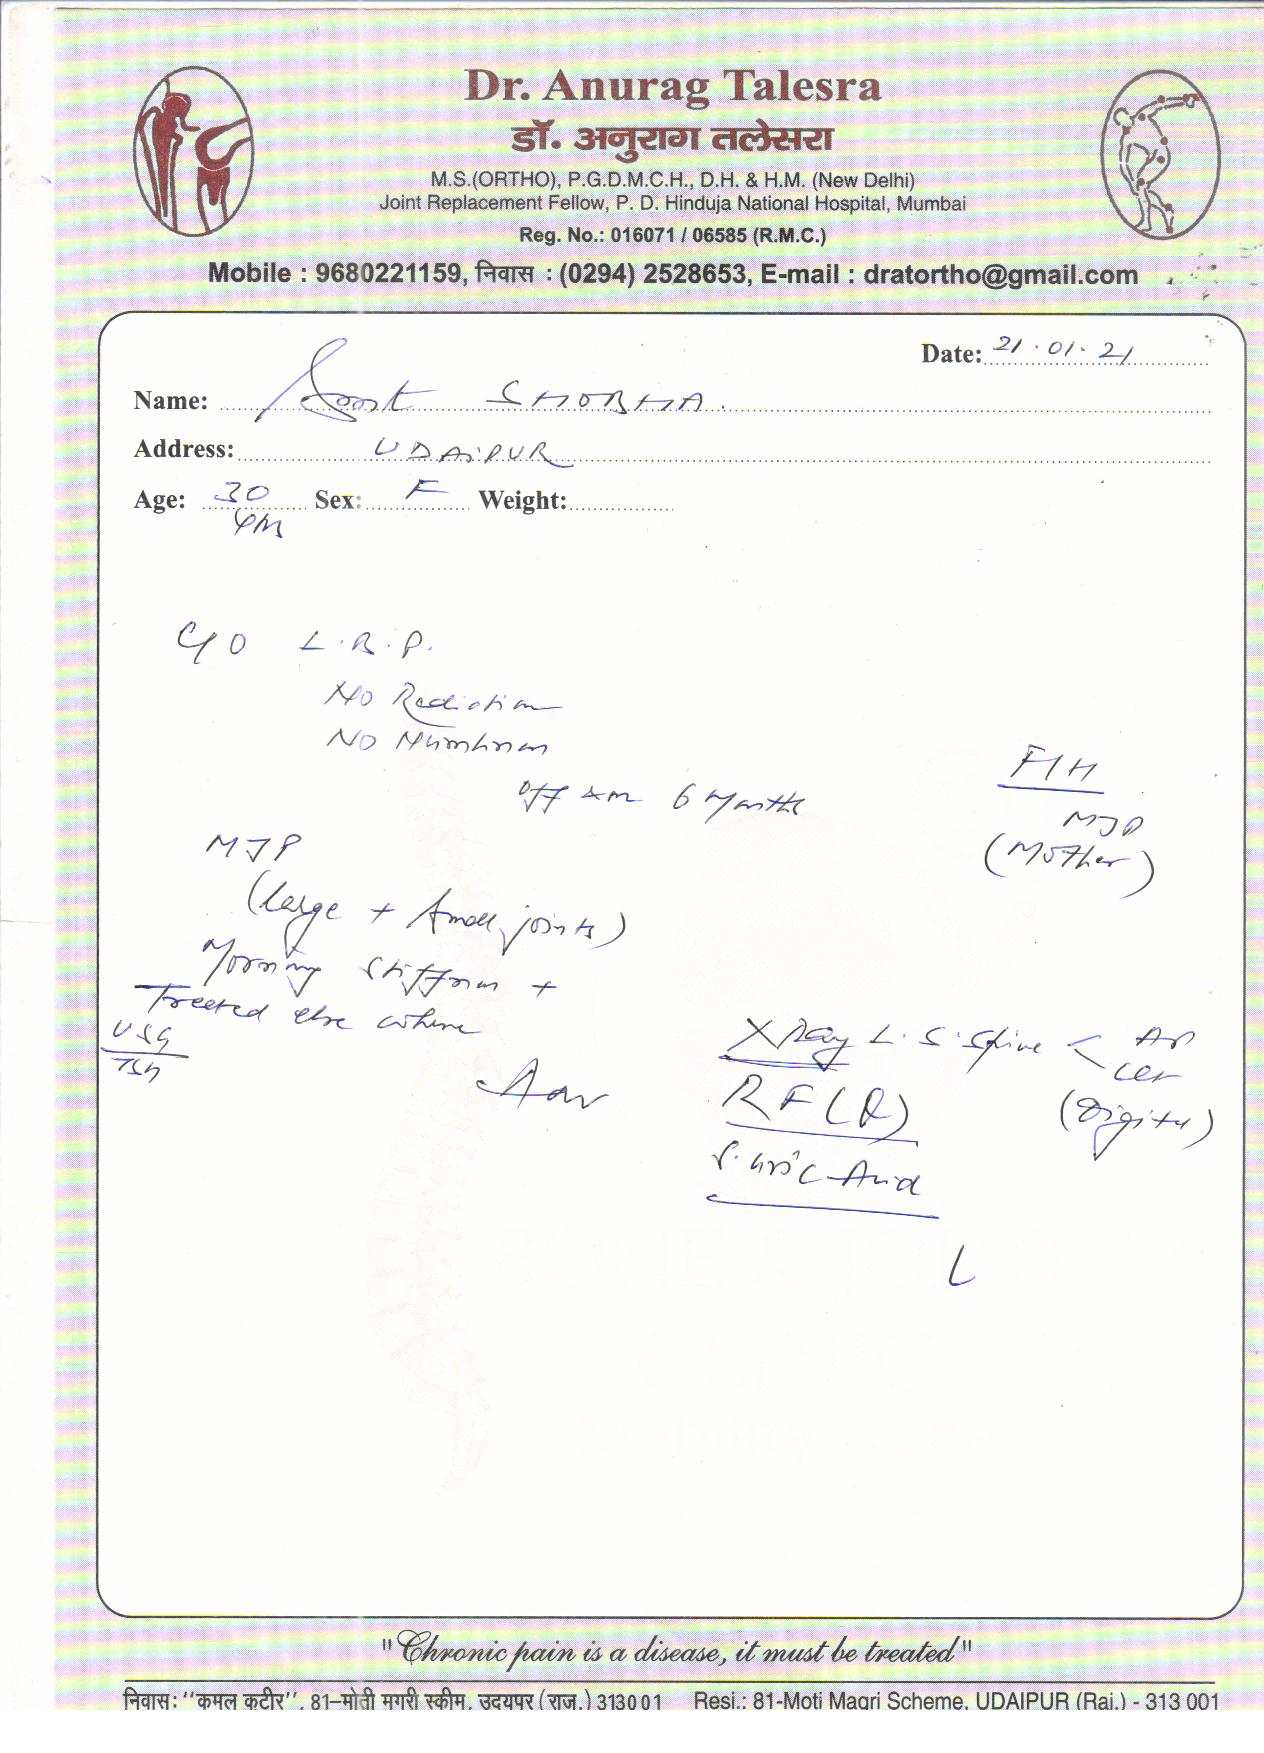 Dr. Anurag Talesra
डॉ. अनुराग तलेसरा
M.S.(ORTHO), P.G.D.M.C.H., D.H. & H.M. (New Delhi)
Joint Replacement Fellow, P. D. Hinduja National Hospital, Mumbai
Reg. No.: 016071 / 06585 (R.M.C.)
Mobile : 9680221159, निवास : (0294) 2528653, E-mail : dratortho@gmail.com
Date: 21.01.21
Name: Smt SHOBHA.
Address: UDAIPUR
Age: 30 Sex: F Weight:
C/O L.B.P.
No Radiation
No Numbness
off & on 6 Months
F/H
(Mother)
MJP
(large + small joints)
Morning stiffness +
Treated else where
USG
TSH
Adv
X Ray L.S. Spine < AP
Lat
(Digital)
RF (Q)
S. Uric Acid
"Chronic pain is a disease, it must be treated"
निवास: "कमल कुटीर", 81–मोती मगरी स्कीम, उदयपुर (राज.) 313001 Resi.: 81-Moti Magri Scheme, UDAIPUR (Raj.) - 313 001